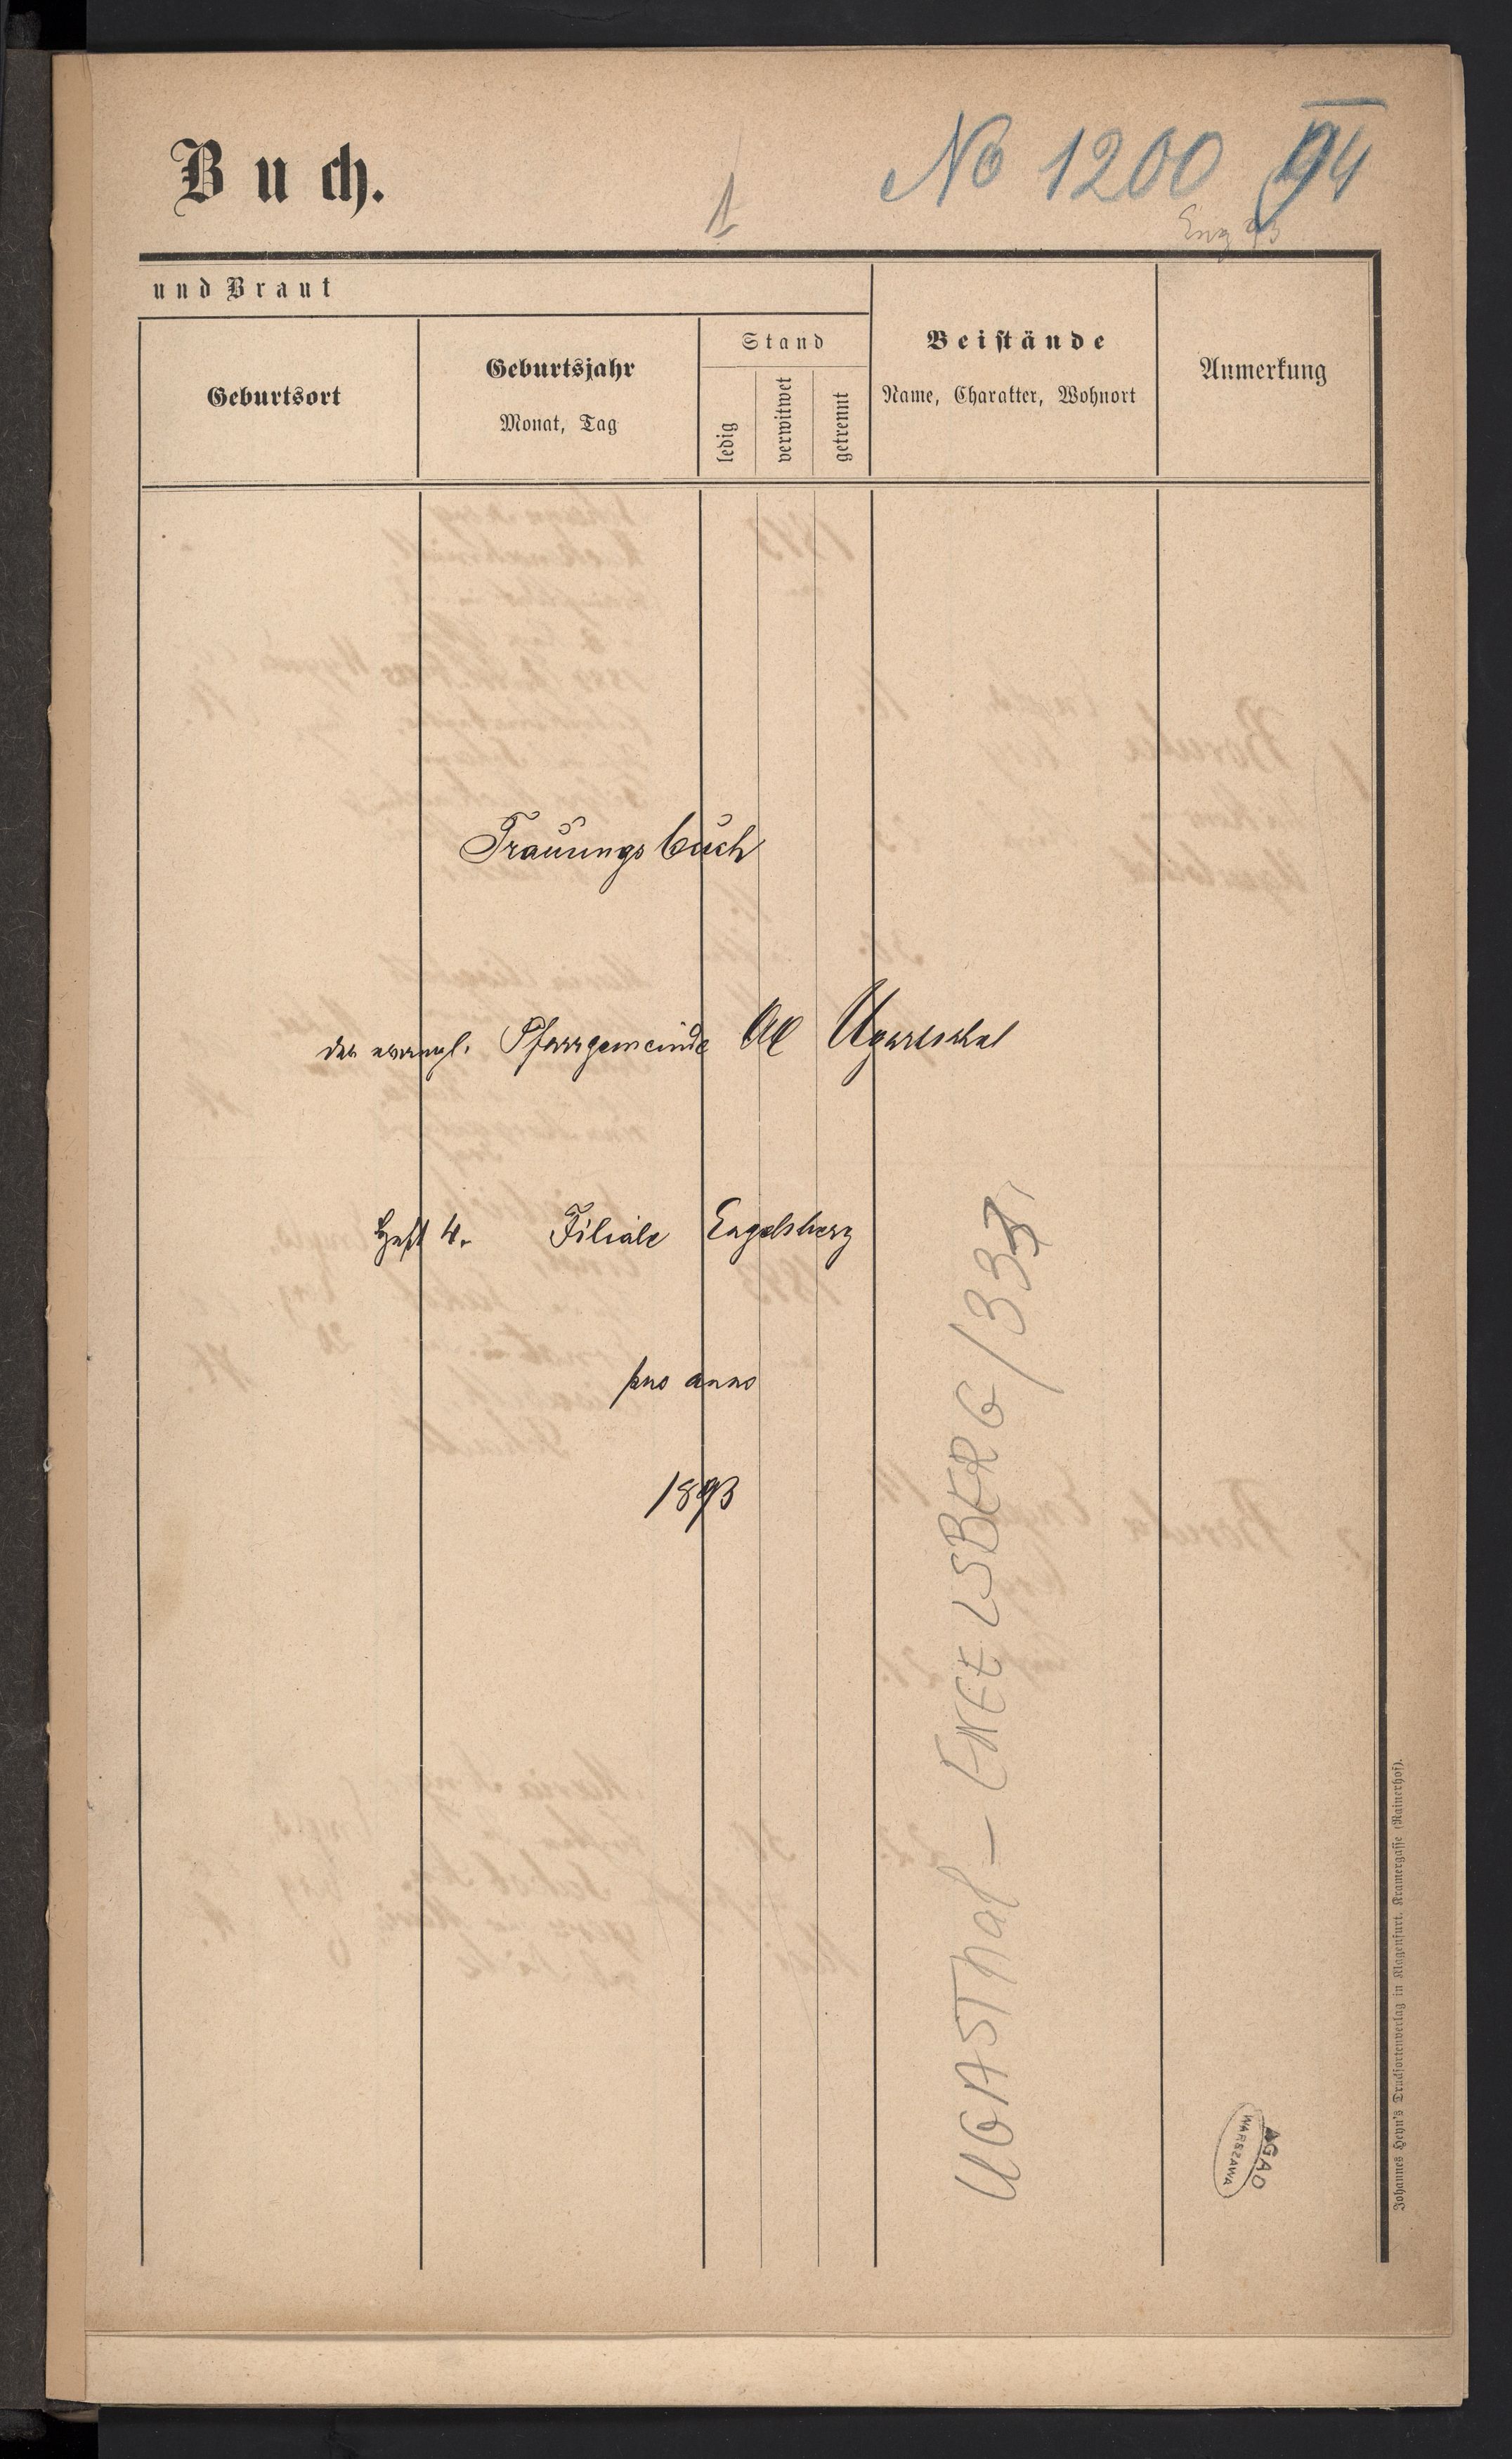 Buch.
1
No 1200 94
Eng 93
und Braut
Geburtsort
Geburtsjahr
Monat, Tag
Stand
ledig
verwitwet
getrennt
Beistände
Name, Charakter, Wohnort
Anmerkung
Trauungsbuch
der evangl. Pfarrgemeinde AC Ugartsthal
Heft 4. Filiale Engelsberg
pro anno
1893
UGASTHal - ENGELSBERG / 333
AGAD
WARSZAWA
Johannes Heyn's Drucksortenverlag in Klagenfurt, Kramergasse (Rainerhof).